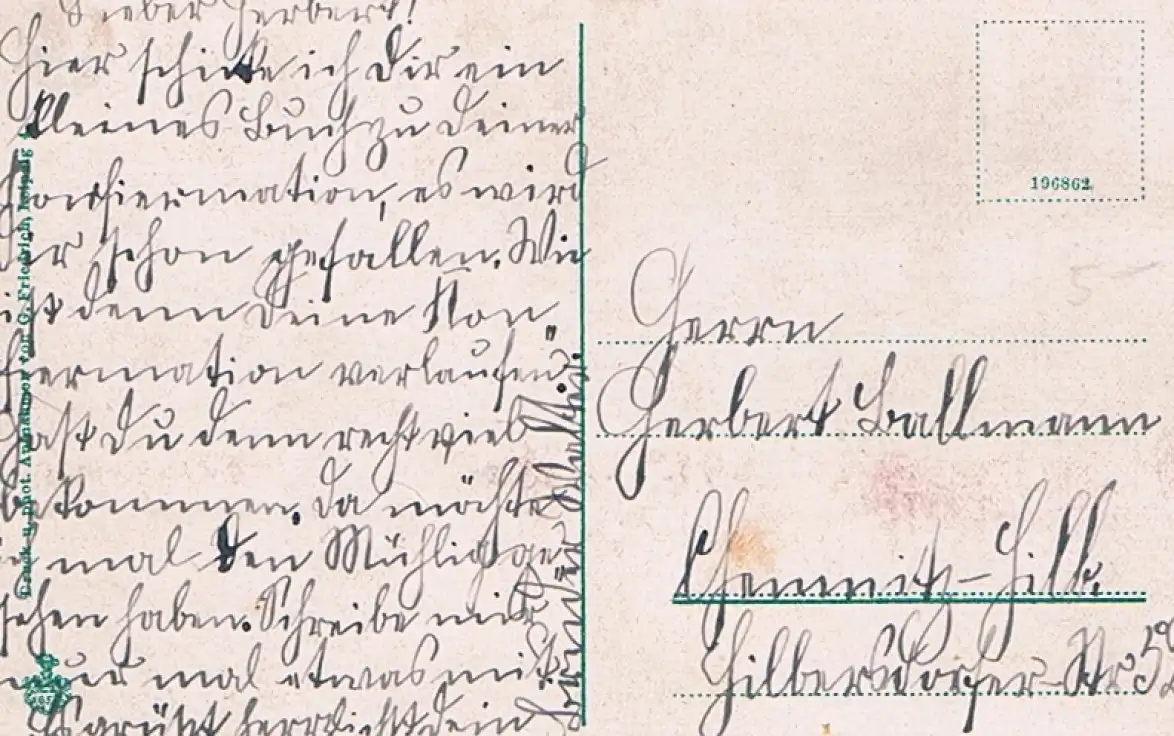 Lieber Herbert!
Hier schicke ich Dir ein
kleines Buch zu Deiner
Konfiermation, es wird
Dir schon gefallen. Wie
ist denn Deine Kon„
fiermation verlaufen?
Hast Du denn recht viel
bekommen. Da möchte
ich mal den Mühlig ge„
sehen haben. Schreibe mir
nur mal etwas mit.
Es grüßt herzlichst dein
Druck u. phot. Aufnahmen von G. Friedrich, Leipzig
196862
Herrn
Herbert Ballmann
Chemnitz-Hilb.
Hilbersdorfer-Str 59